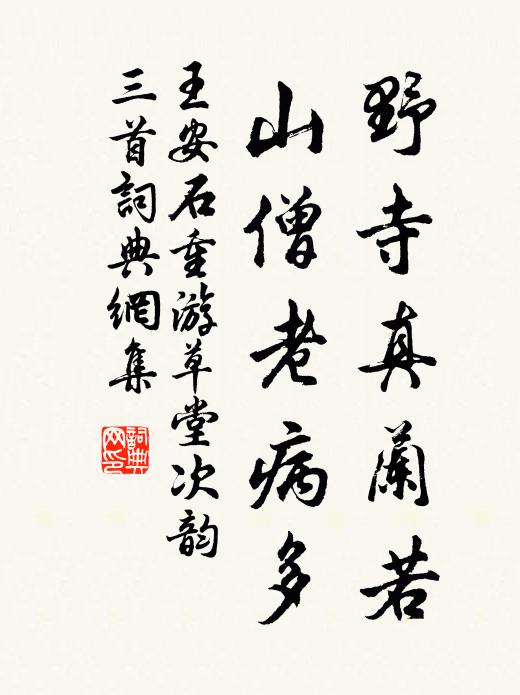 野寺真蘭若
山僧老病多
王安石重游草堂次韵
三首詞典網集
詞典
网印